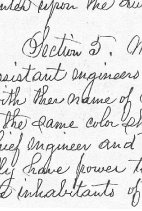 upon the
Section 5.
sistant engineers
ith their name of
the same color
ief engineer and
ly have power t
inhabitants of